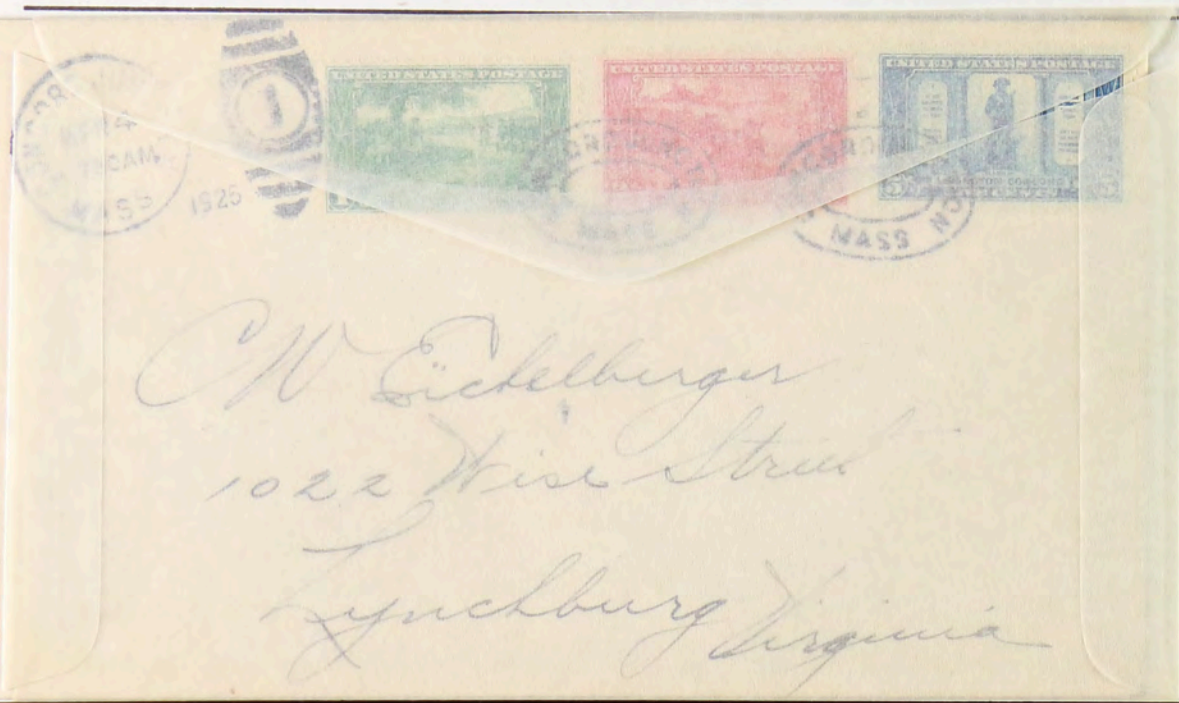 CONCORD JUN.
APR 4
30 AM
MASS
1925
1
UNITED STATES POSTAGE
UNITED STATES POSTAGE
UNITED STATES POSTAGE
MASS
MASS
C W Eichelberger
1022 Wise Street
Lynchburg Virginia